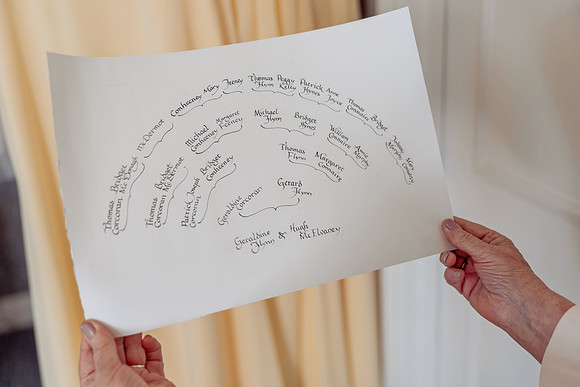 Thomas Corcoran
Bridget
McDermot
Conheeney Mary Feeney
Thomas Flynn
Peggy Kelly
Patrick Hynes
Anne Joyce
Thomas Connaire
Bridget
Johnny Murphy
Mary
Thomas Corcoran
Bridget McDermot
Michael Conheeney
Margaret Feeney
Michael Flynn
Bridget Hynes
William Connaire
Annie Murphy
Patrick Joseph Corcoran
Bridget Conheeney
Thomas Flynn
Margaret Connaire
Geraldine Corcoran
Gerard Flynn
Geraldine Flynn & Hugh McElvaney